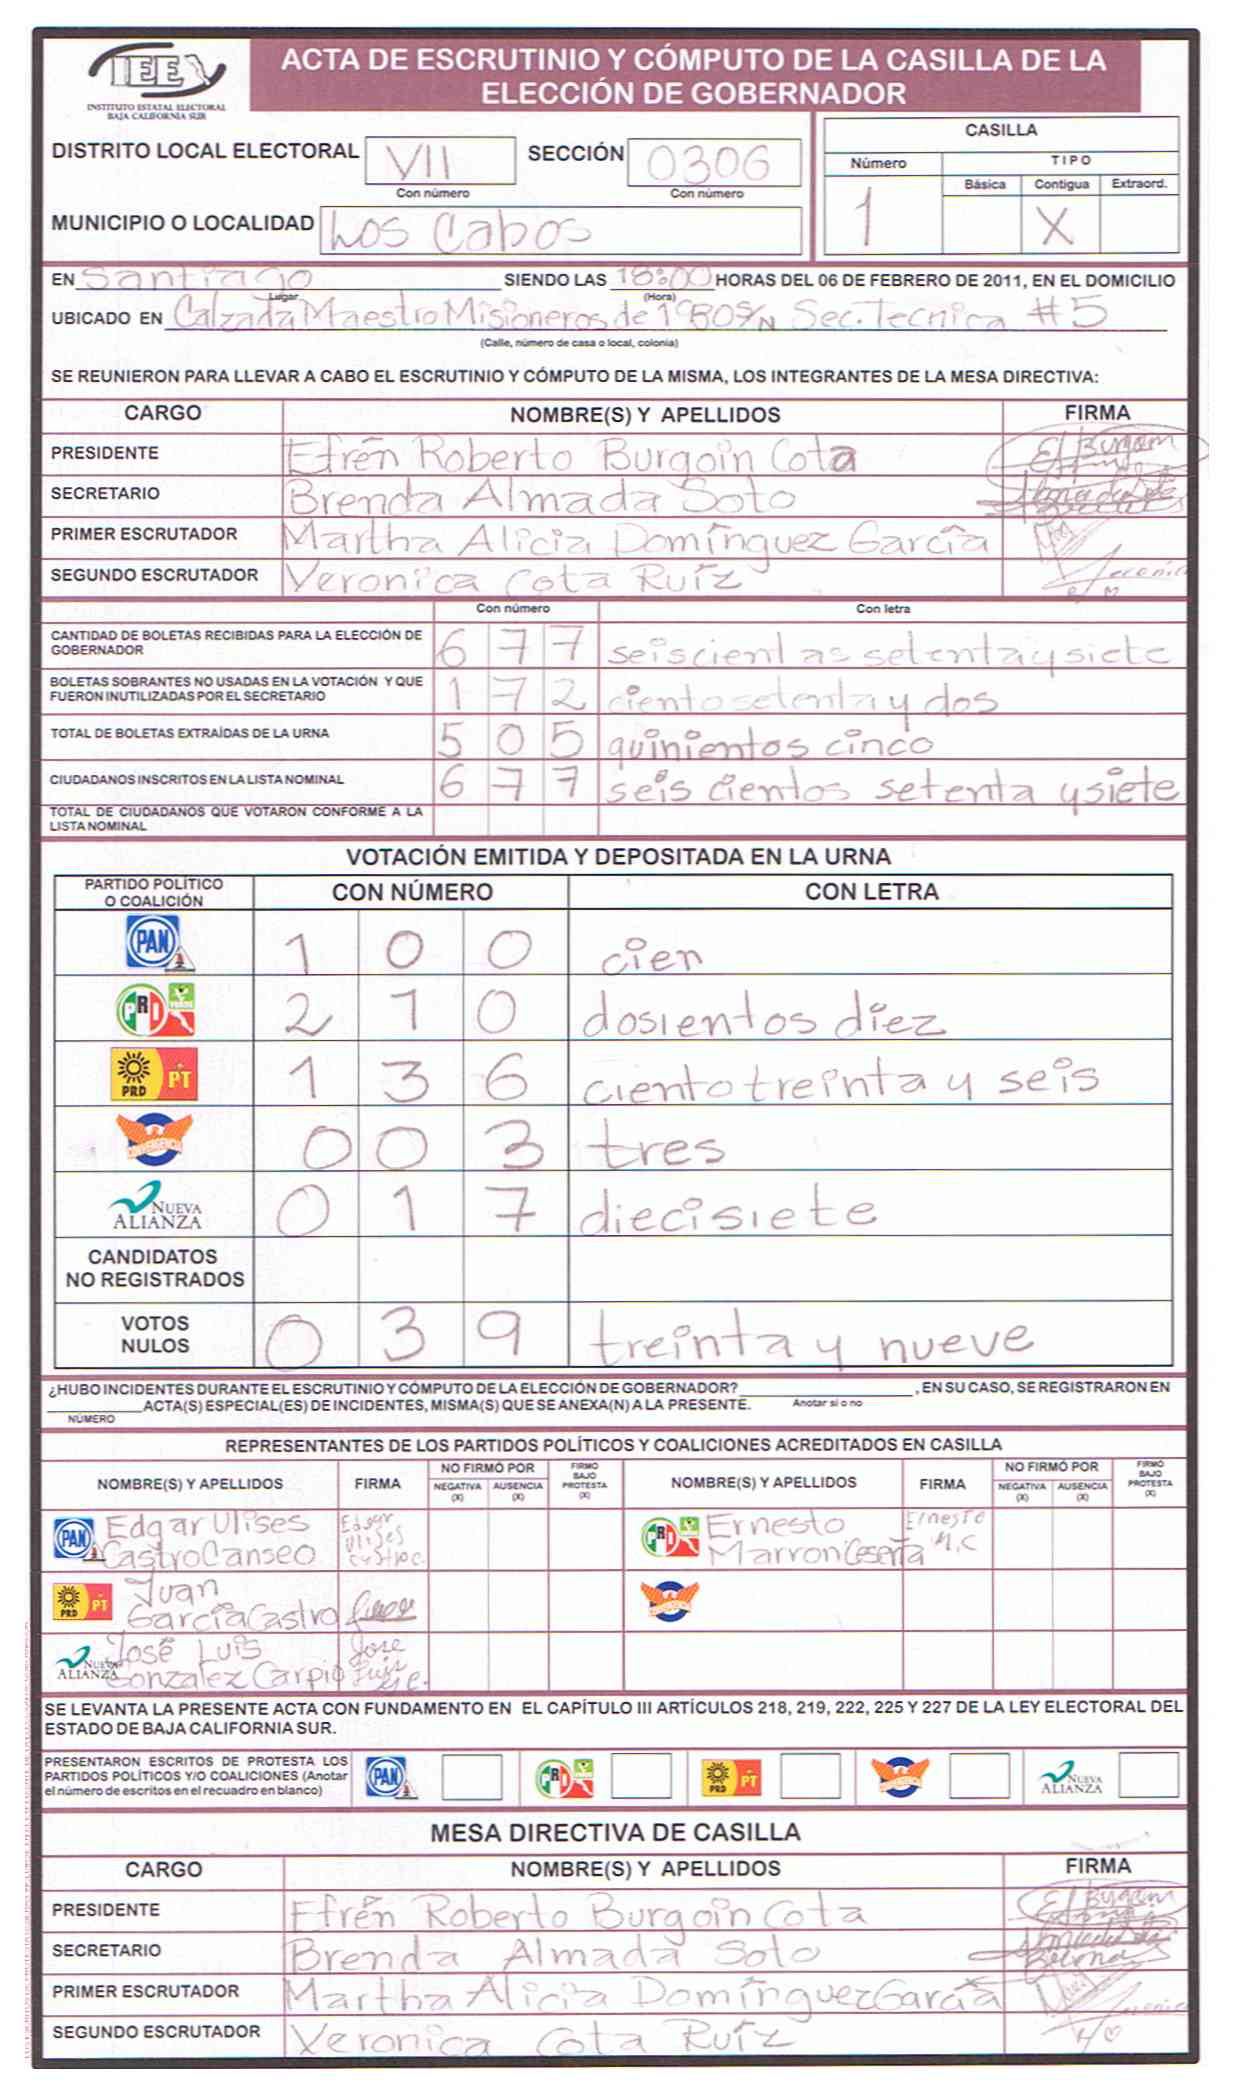 IEE
INSTITUTO ESTATAL ELECTORAL
BAJA CALIFORNIA SUR
ACTA DE ESCRUTINIO Y CÓMPUTO DE LA CASILLA DE LA
ELECCIÓN DE GOBERNADOR
DISTRITO LOCAL ELECTORAL VII SECCIÓN 0306
Con número Con número
MUNICIPIO O LOCALIDAD Los Cabos
CASILLA
Número TIPO
Básica Contigua Extraord.
1 X
EN Santiago SIENDO LAS 18:00 HORAS DEL 06 DE FEBRERO DE 2011, EN EL DOMICILIO
Lugar (Hora)
UBICADO EN Calzada Maestro Misioneros de S/N Sec. Tecnica #5
(Calle, número de casa o local, colonia)
SE REUNIERON PARA LLEVAR A CABO EL ESCRUTINIO Y CÓMPUTO DE LA MISMA, LOS INTEGRANTES DE LA MESA DIRECTIVA:
CARGO NOMBRE(S) Y APELLIDOS FIRMA
PRESIDENTE Efrén Roberto Burgoin Cota
SECRETARIO Brenda Almada Soto
PRIMER ESCRUTADOR Martha Alicia Domínguez García
SEGUNDO ESCRUTADOR Veronica Cota Ruíz
Con número Con letra
CANTIDAD DE BOLETAS RECIBIDAS PARA LA ELECCIÓN DE
GOBERNADOR 6 7 7 seiscient as setenta y siete
BOLETAS SOBRANTES NO USADAS EN LA VOTACIÓN Y QUE
FUERON INUTILIZADAS POR EL SECRETARIO 1 7 2 ciento setenta y dos
TOTAL DE BOLETAS EXTRAÍDAS DE LA URNA 5 0 5 quinientos cinco
CIUDADANOS INSCRITOS EN LA LISTA NOMINAL 6 7 7 seis cientos setenta y siete
TOTAL DE CIUDADANOS QUE VOTARON CONFORME A LA
LISTA NOMINAL
VOTACIÓN EMITIDA Y DEPOSITADA EN LA URNA
PARTIDO POLÍTICO
O COALICIÓN CON NÚMERO CON LETRA
PAN 1 0 0 cien
PRI VERDE 2 1 0 dosientos diez
PRD PT 1 3 6 ciento treinta y seis
CONVERGENCIA 0 0 3 tres
NUEVA ALIANZA 0 1 7 diecisiete
CANDIDATOS
NO REGISTRADOS
VOTOS
NULOS 0 3 9 treinta y nueve
¿HUBO INCIDENTES DURANTE EL ESCRUTINIO Y CÓMPUTO DE LA ELECCIÓN DE GOBERNADOR? , EN SU CASO, SE REGISTRARON EN
ACTA(S) ESPECIAL(ES) DE INCIDENTES, MISMA(S) QUE SE ANEXA(N) A LA PRESENTE. Anotar sí o no
NÚMERO
REPRESENTANTES DE LOS PARTIDOS POLÍTICOS Y COALICIONES ACREDITADOS EN CASILLA
NOMBRE(S) Y APELLIDOS FIRMA NO FIRMÓ POR FIRMÓ BAJO PROTESTA (X) NOMBRE(S) Y APELLIDOS FIRMA NO FIRMÓ POR FIRMÓ BAJO PROTESTA (X)
NEGATIVA (X) AUSENCIA (X) NEGATIVA (X) AUSENCIA (X)
PAN Edgar Ulises Castro Canseo Edgar Ulises PRI VERDE Ernesto Marron Ceseña Ernesto M,C
PRD PT Juan García Castro CONVERGENCIA
NUEVA ALIANZA José Luis Gonzalez Carpio Jose Luis
SE LEVANTA LA PRESENTE ACTA CON FUNDAMENTO EN EL CAPÍTULO III ARTÍCULOS 218, 219, 222, 225 Y 227 DE LA LEY ELECTORAL DEL
ESTADO DE BAJA CALIFORNIA SUR.
PRESENTARON ESCRITOS DE PROTESTA LOS
PARTIDOS POLÍTICOS Y/O COALICIONES (Anotar
el número de escritos en el recuadro en blanco)
PAN PRI PRD PT NUEVA ALIANZA
MESA DIRECTIVA DE CASILLA
CARGO NOMBRE(S) Y APELLIDOS FIRMA
PRESIDENTE Efrén Roberto Burgoin Cota
SECRETARIO Brenda Almada Soto
PRIMER ESCRUTADOR Martha Alicia Domínguez García
SEGUNDO ESCRUTADOR Veronica Cota Ruíz